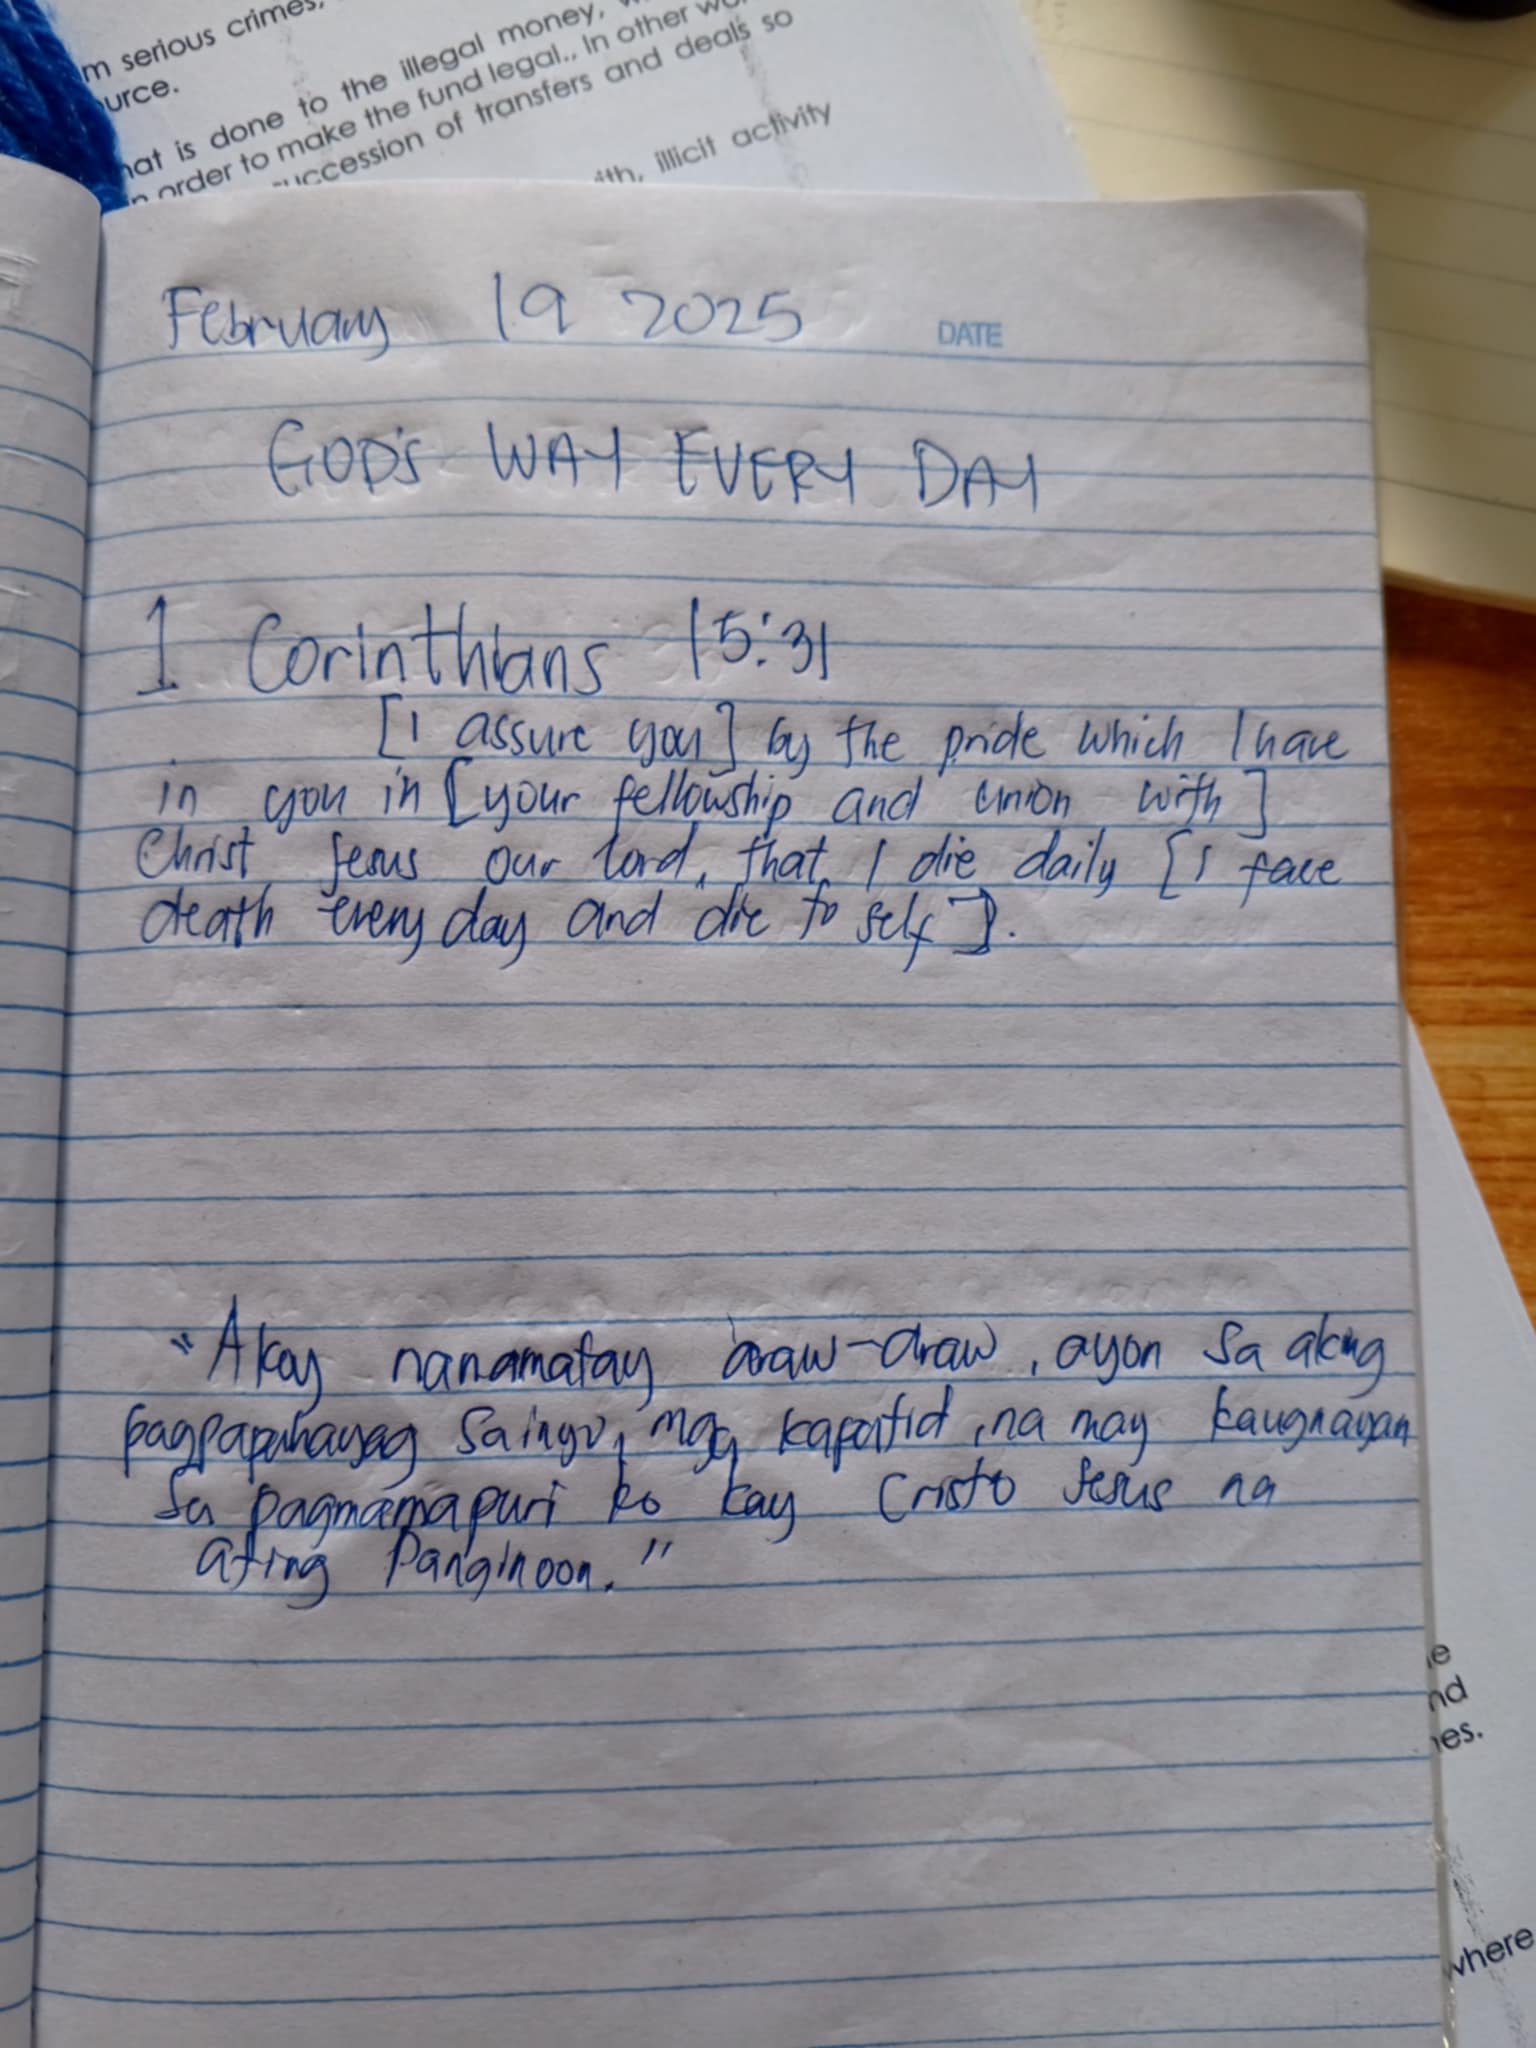 m serious crimes,
urce.
hat is done to the illegal money,
n order to make the fund legal., In other wo
uccession of transfers and deals so
ith, illicit activity
February 19 2025 DATE
GOD'S WAY EVERY DAY
1 Corinthians 15:31
[I assure you] by the pride which I have
in you in [your fellowship and union with]
Christ Jesus our lord, that I die daily [I face
death every day and die to self].
"Akoy nanamatay araw-araw, ayon sa aking
pagpapahayag sainyo, mga kapatid, na may kaugnayan
sa pagmamapuri ko kay Cristo Jesus na
ating Panginoon."
e
nd
es.
where